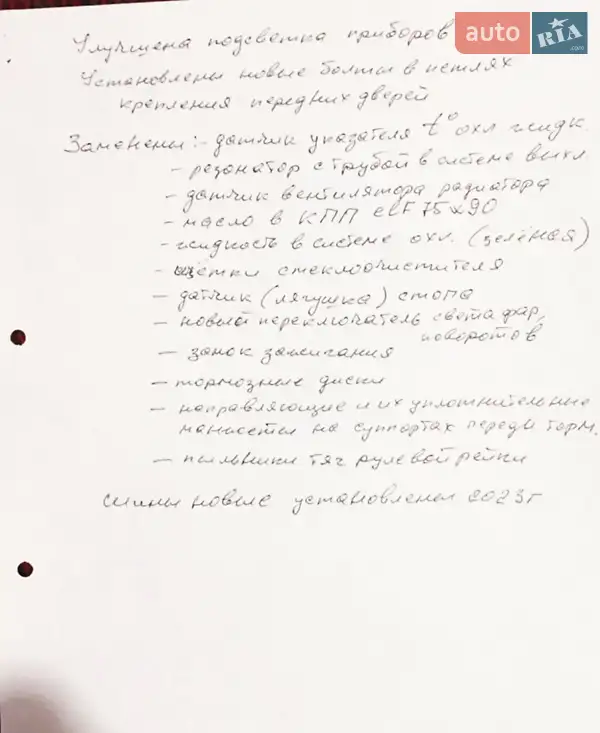 Улучшена подсветка приборов
auto RIA .com
Установлены новые болты в петлях
крепления передних дверей
Заменены: - датчик указателя t° охл жидк.
- резонатор с трубой в системе выхл
- датчик вентилятора радиатора
- масло в КПП elf 75w90
- жидкость в системе охл. (зелёная)
- щётки стеклоочистителя
- датчик (лягушка) стопа
- новый переключатель света фар,
поворотов
- замок зажигания
- тормозные диски
- направляющие и их уплотнительные
манжеты на суппортах передн торм.
- пыльники тяг рулевой рейки
шины новые установлены 2023г